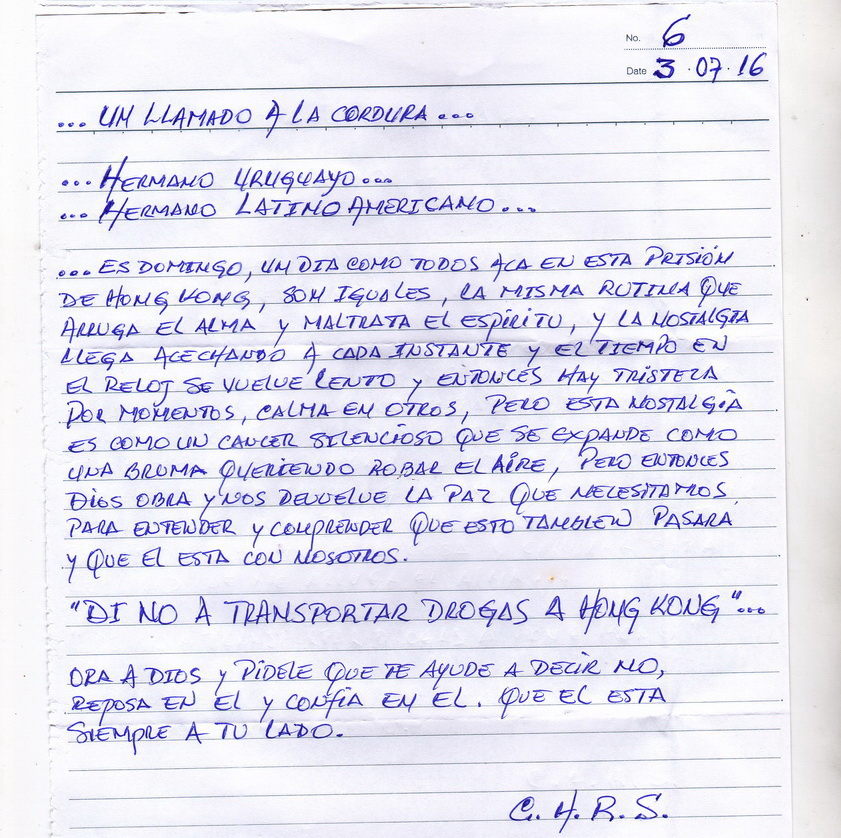 No. 6
Date 3 · 07 · 16
... UN LLAMADO A LA CORDURA ...
... HERMANO URUGUAYO ...
... HERMANO LATINO AMERICANO ...
... ES DOMINGO, UN DIA COMO TODOS ACA EN ESTA PRISIÓN
DE HONG KONG, SON IGUALES, LA MISMA RUTINA QUE
ARRUGA EL ALMA Y MALTRATA EL ESPÍRITU, Y LA NOSTALGIA
LLEGA ACECHANDO A CADA INSTANTE Y EL TIEMPO EN
EL RELOJ SE VUELVE LENTO Y ENTONCES HAY TRISTEZA
POR MOMENTOS, CALMA EN OTROS, PERO ESTA NOSTALGIA
ES COMO UN CANCER SILENCIOSO QUE SE EXPANDE COMO
UNA BRUMA QUERIENDO ROBAR EL AIRE, PERO ENTONCES
DIOS OBRA Y NOS DEVUELVE LA PAZ QUE NECESITAMOS
PARA ENTENDER Y COMPRENDER QUE ESTO TAMBIEN PASARA
Y QUE EL ESTA CON NOSOTROS.
"DI NO A TRANSPORTAR DROGAS A HONG KONG"...
ORA A DIOS Y PIDELE QUE TE AYUDE A DECIR NO,
REPOSA EN EL Y CONFIA EN EL. QUE EL ESTA
SIEMPRE A TU LADO.
C. H. R. S.